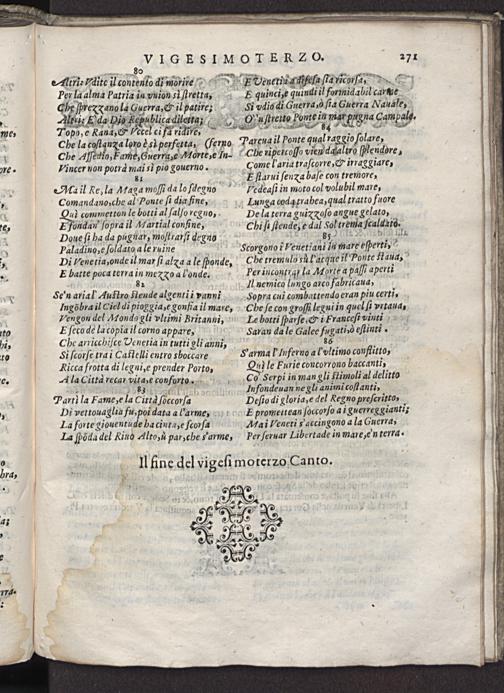 VIGESIMOTERZO. 271
80
Altri: Vdite il contento di morire
Per la alma Patria in vnion sì stretta,
Che sprezzano la Guerra, & il patire;
Altri: E' da Dio Republica diletta;
Topo, e Rana, & Vccel ci fà ridire,
Che la costanza loro è sì perfetta, (ferno
Che Assedio, Fame, Guerra, e Morte, e In-
Vincer non potrà mai sì pio gouerno.
81
Ma il Re, la Maga mossi da lo sdegno
Comandano, che al Ponte si dia fine,
Quì commetton le botti al salso regno,
E fondan' sopra il Martial confine,
Doue si ha da pugnar, mostrarsi degno
Paladino, e soldato a le ruine
Di Venetia, onde il mar si alza a le sponde,
E batte poca terra in mezzo a l'onde.
82
Se'n aria l'Austro stende algenti i vanni
Ingõbra il Ciel di pioggia, e gonfia il mare,
Vengon del Mondo gli vltimi Britanni,
E seco de la copia il corno appare,
Che arricchisce Venetia in tutti gli anni,
Si scorse tra i Castelli entro sboccare
Ricca frotta di legni, e prender Porto,
A la Città recar vita, e conforto.
83
Partì la Fame, e la Città soccorsa
Di vettouaglia fù, poi data a l'arme,
La forte giouentude ha cinta, e scorsa
La spõda del Riuo Alto, ù par, che s'arme,
E Venetia a difesa sia ricorsa,
E quinci, e quindi il formidabil carme
Si vdio di Guerra, ò sia Guerra Nauale,
O' ustretto Ponte in mar pugna Campale.
84
Parcua il Ponte qual raggio solare,
Che ripercosso vien da altro splendore,
Come l'aria trascorre, & irraggiare,
E starui senza base con tremore,
Vedeasi in moto col volubil mare,
Lunga coda, trabea, qual tratto fuore
De la terra guizzoso angue gelato,
Chi si stende, e dal Sol trema scaldato.
85
Scorgono i Venetiani in mare esperti,
Che tremulo sù l'acque il Ponte staua,
Per incontrar la Morte a passi aperti
Il nemico lungo arco fabricaua,
Sopra cui combattendo eran piu certi,
Che se con grossi legni in quel si vrtaua,
Le botti sparse, & i Francesi vinti
Saran da le Galee fugati, ò estinti.
86
S'arma l'Inferno a l'vltimo conflitto,
Quì le Furie concorrono baccanti,
Co' Serpi in man gli stimoli al delitto
Infondeuan ne gli animi costanti,
Desio di gloria, e del Regno prescritto,
E promettean soccorso a i guerreggianti;
Ma i Veneti s'accingono a la Guerra,
Perseruar Libertade in mare, e'n terra.
Il fine del vigesimoterzo Canto.